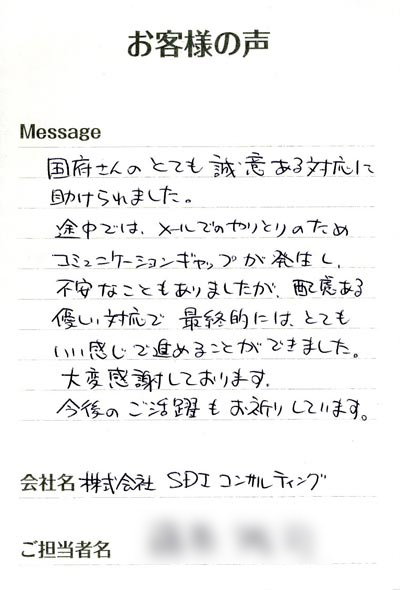 お客様の声
Message
国府さんのとても誠意ある対応に
助けられました。
途中では、メールでのやりとりのため
コミュニケーションギャップが発生し、
不安なこともありましたが、配慮ある
優しい対応で最終的には、とても
いい感じで進めることができました。
大変感謝しております。
今後のご活躍もお祈りしています。
会社名 株式会社 SDI コンサルティング
ご担当者名